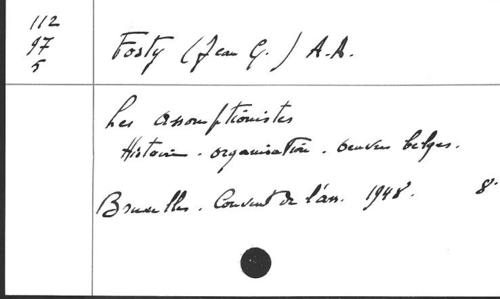 112
97
5
Fosty (Jean G.) A.A.
Les assomptionistes
Histoire - organisation - oeuvres belges.
Bruxelles. Couvent de l'ass. 1948.
8°